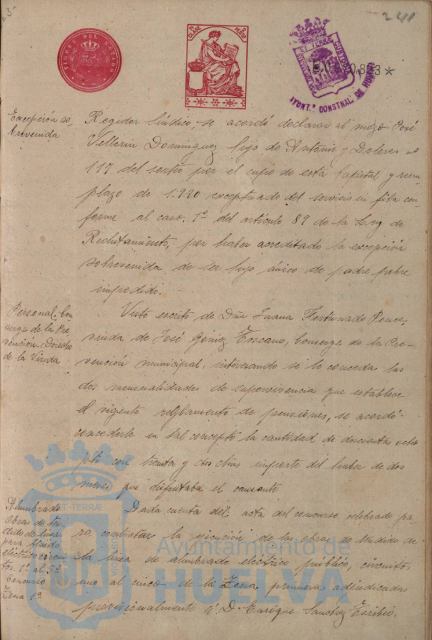 241
Excepción so
brevenida
Regidor Síndico, se acordó declarar al mozo José
Domínguez hijo de Antonio y Dolores nº
117 del sorteo por el cupo de esta Capital y reem
plazo de 1.920 exceptuado del servicio en filas con
forme al caso 1º del artículo 89 de la Ley de
Reclutamiento, por haber acreditado la excepción
sobrevenida de ser hijo único de padre pobre
impedido.
Personal. Con
serge de la Pre
vención. Derechos
de la Viuda
Visto escrito de Dña Juana Fortunado Ponce,
viuda de José Gómez Toscano, Conserge de la Pre-
vención municipal, interesando si le conceda las
dos mensualidades de supervivencia que establece
el vigente reglamento de pensiones, se acordó
concederle en tal concepto la cantidad de
con treinta y importe del haber de dos
meses que disfrutaba el causante.
Alumbrado
obras de
para
electrico
1º al 5º
Concurso
Zona 1ª
Dada cuenta del acta del concurso celebrado pa-
ra contratar la ejecución de las obras de tendido de
la línea de alumbrado eléctrico público, circuitos
uno al cinco de la Zona primera adjudicadas
provisionalmente á D. Enrique Sanchez
Ayuntamiento de
HUELVA